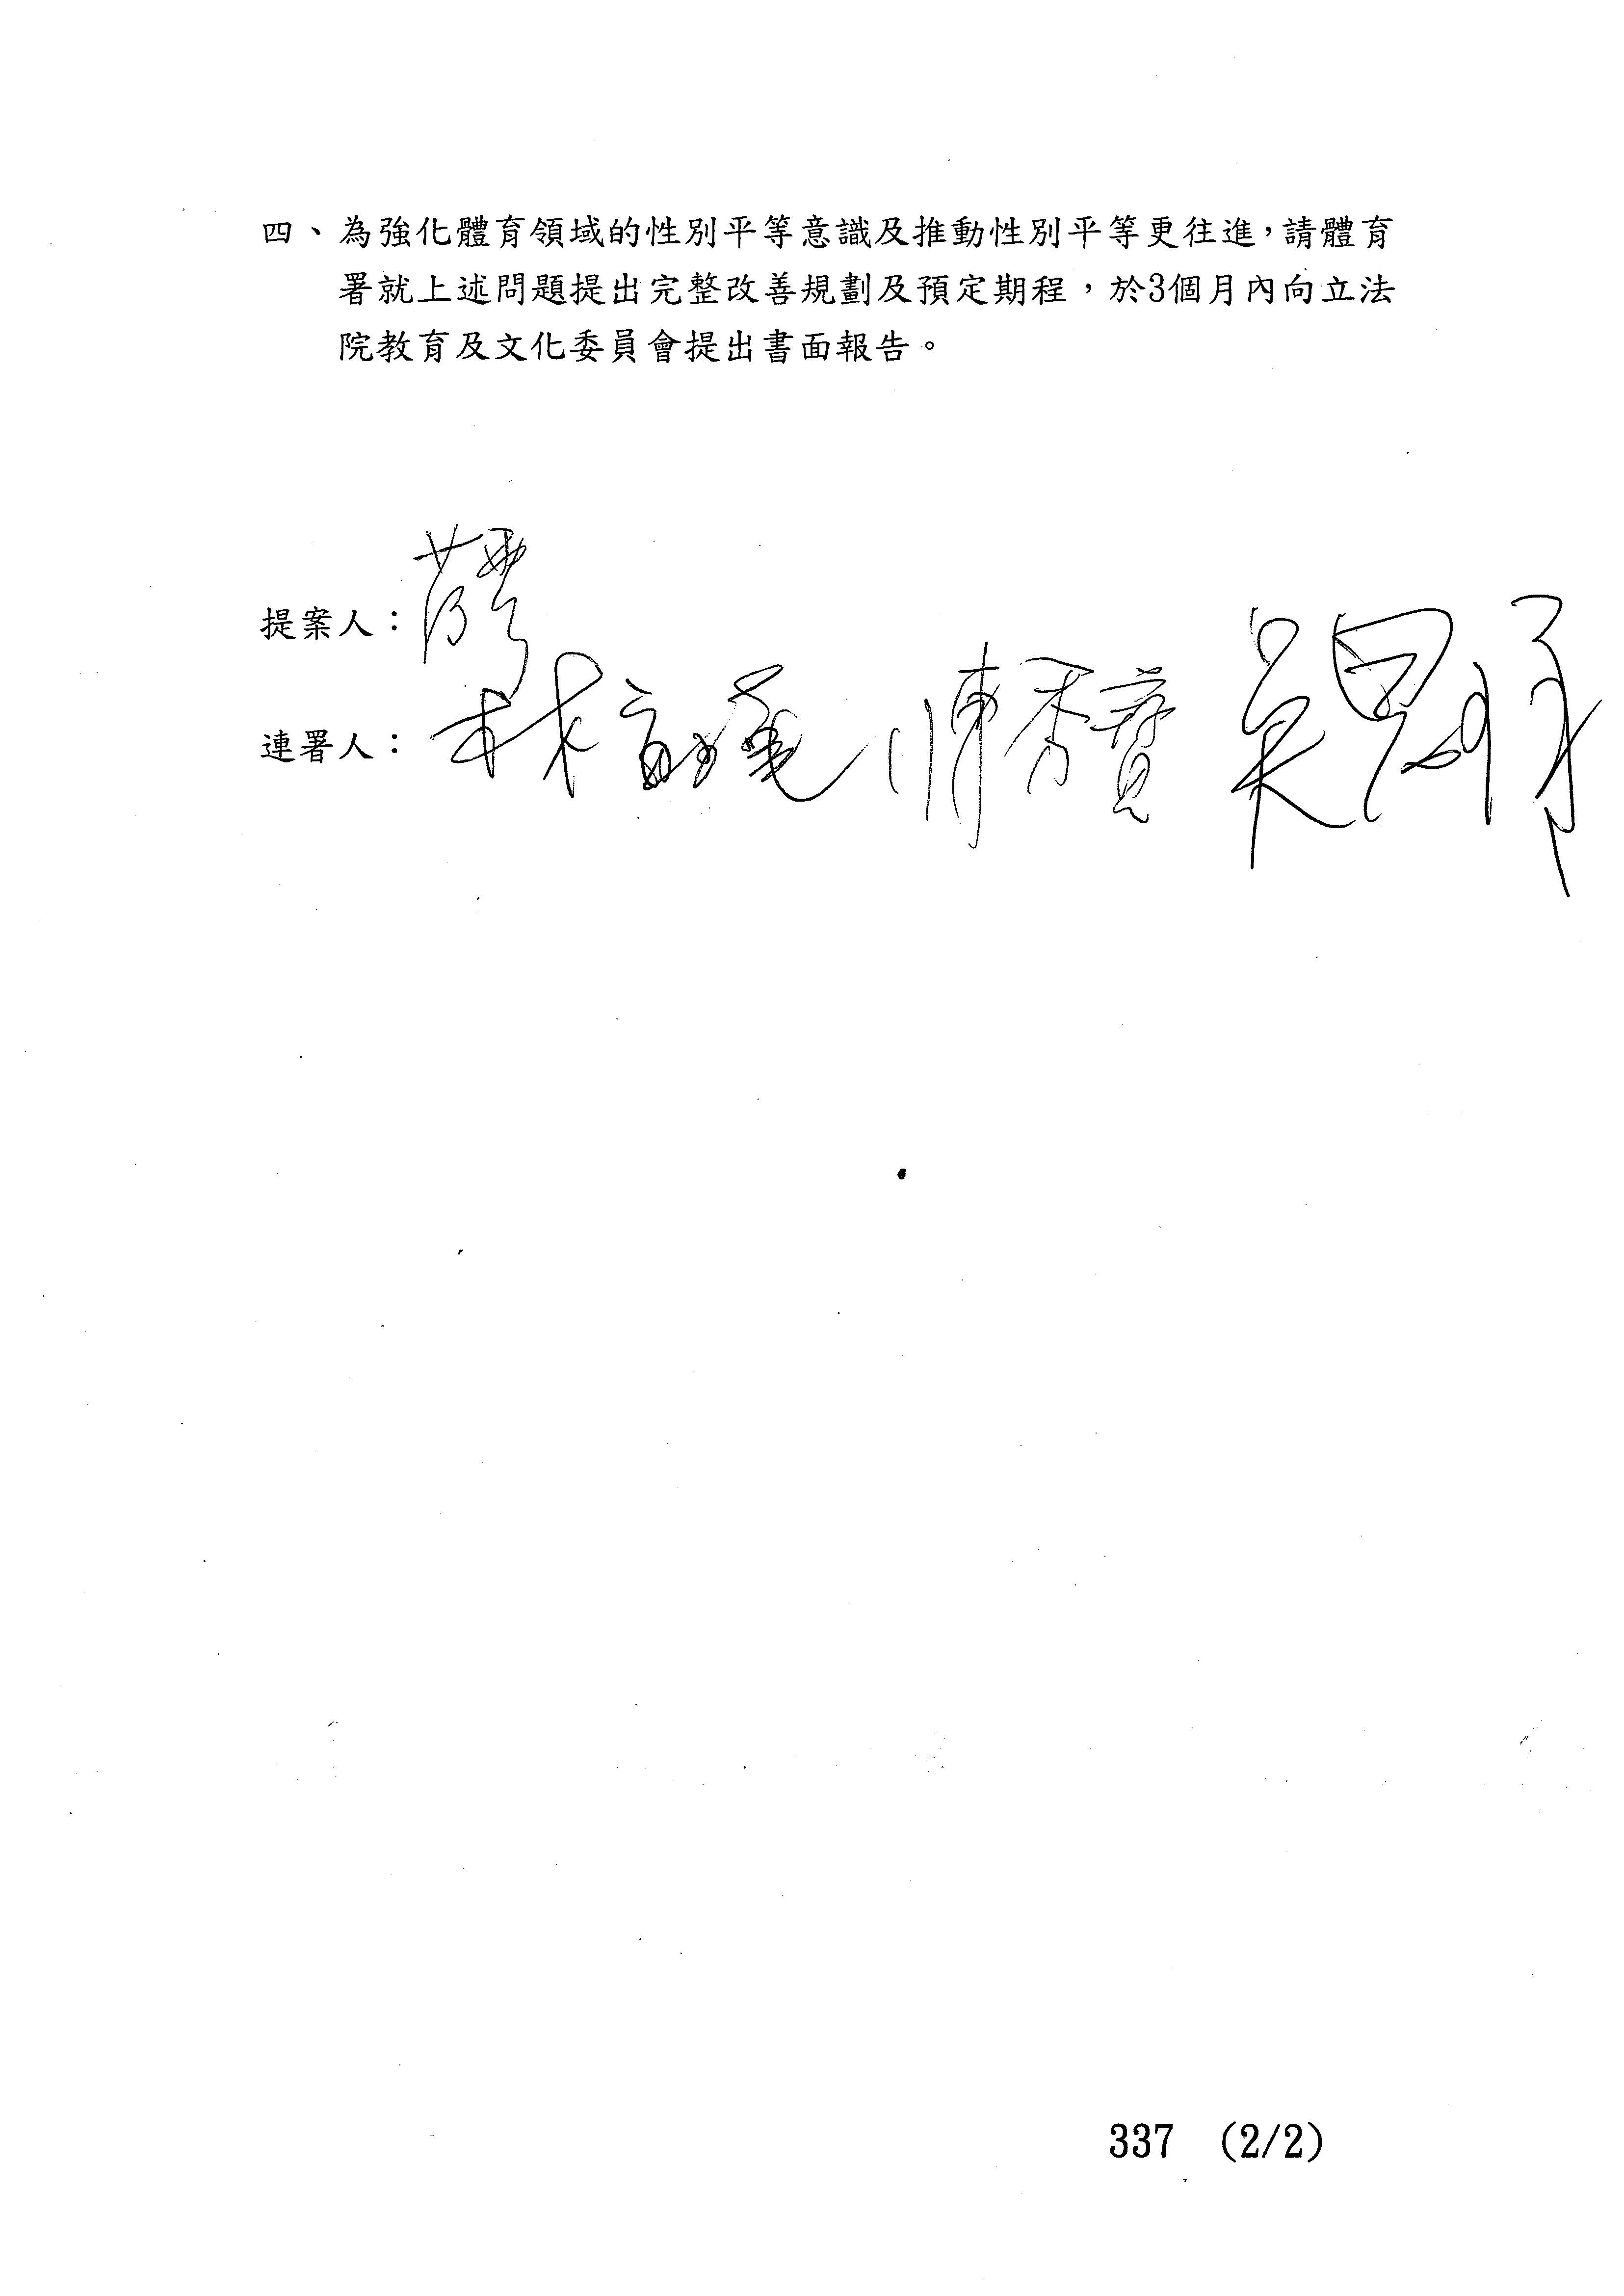 四、為強化體育領域的性別平等意識及推動性別平等更往進,請體育
署就上述問題提出完整改善規劃及預定期程,於3個月內向立法
院教育及文化委員會提出書面報告。
提案人:
連署人:林宜瑾 陳秀寳 吳思瑤
337 (2/2)